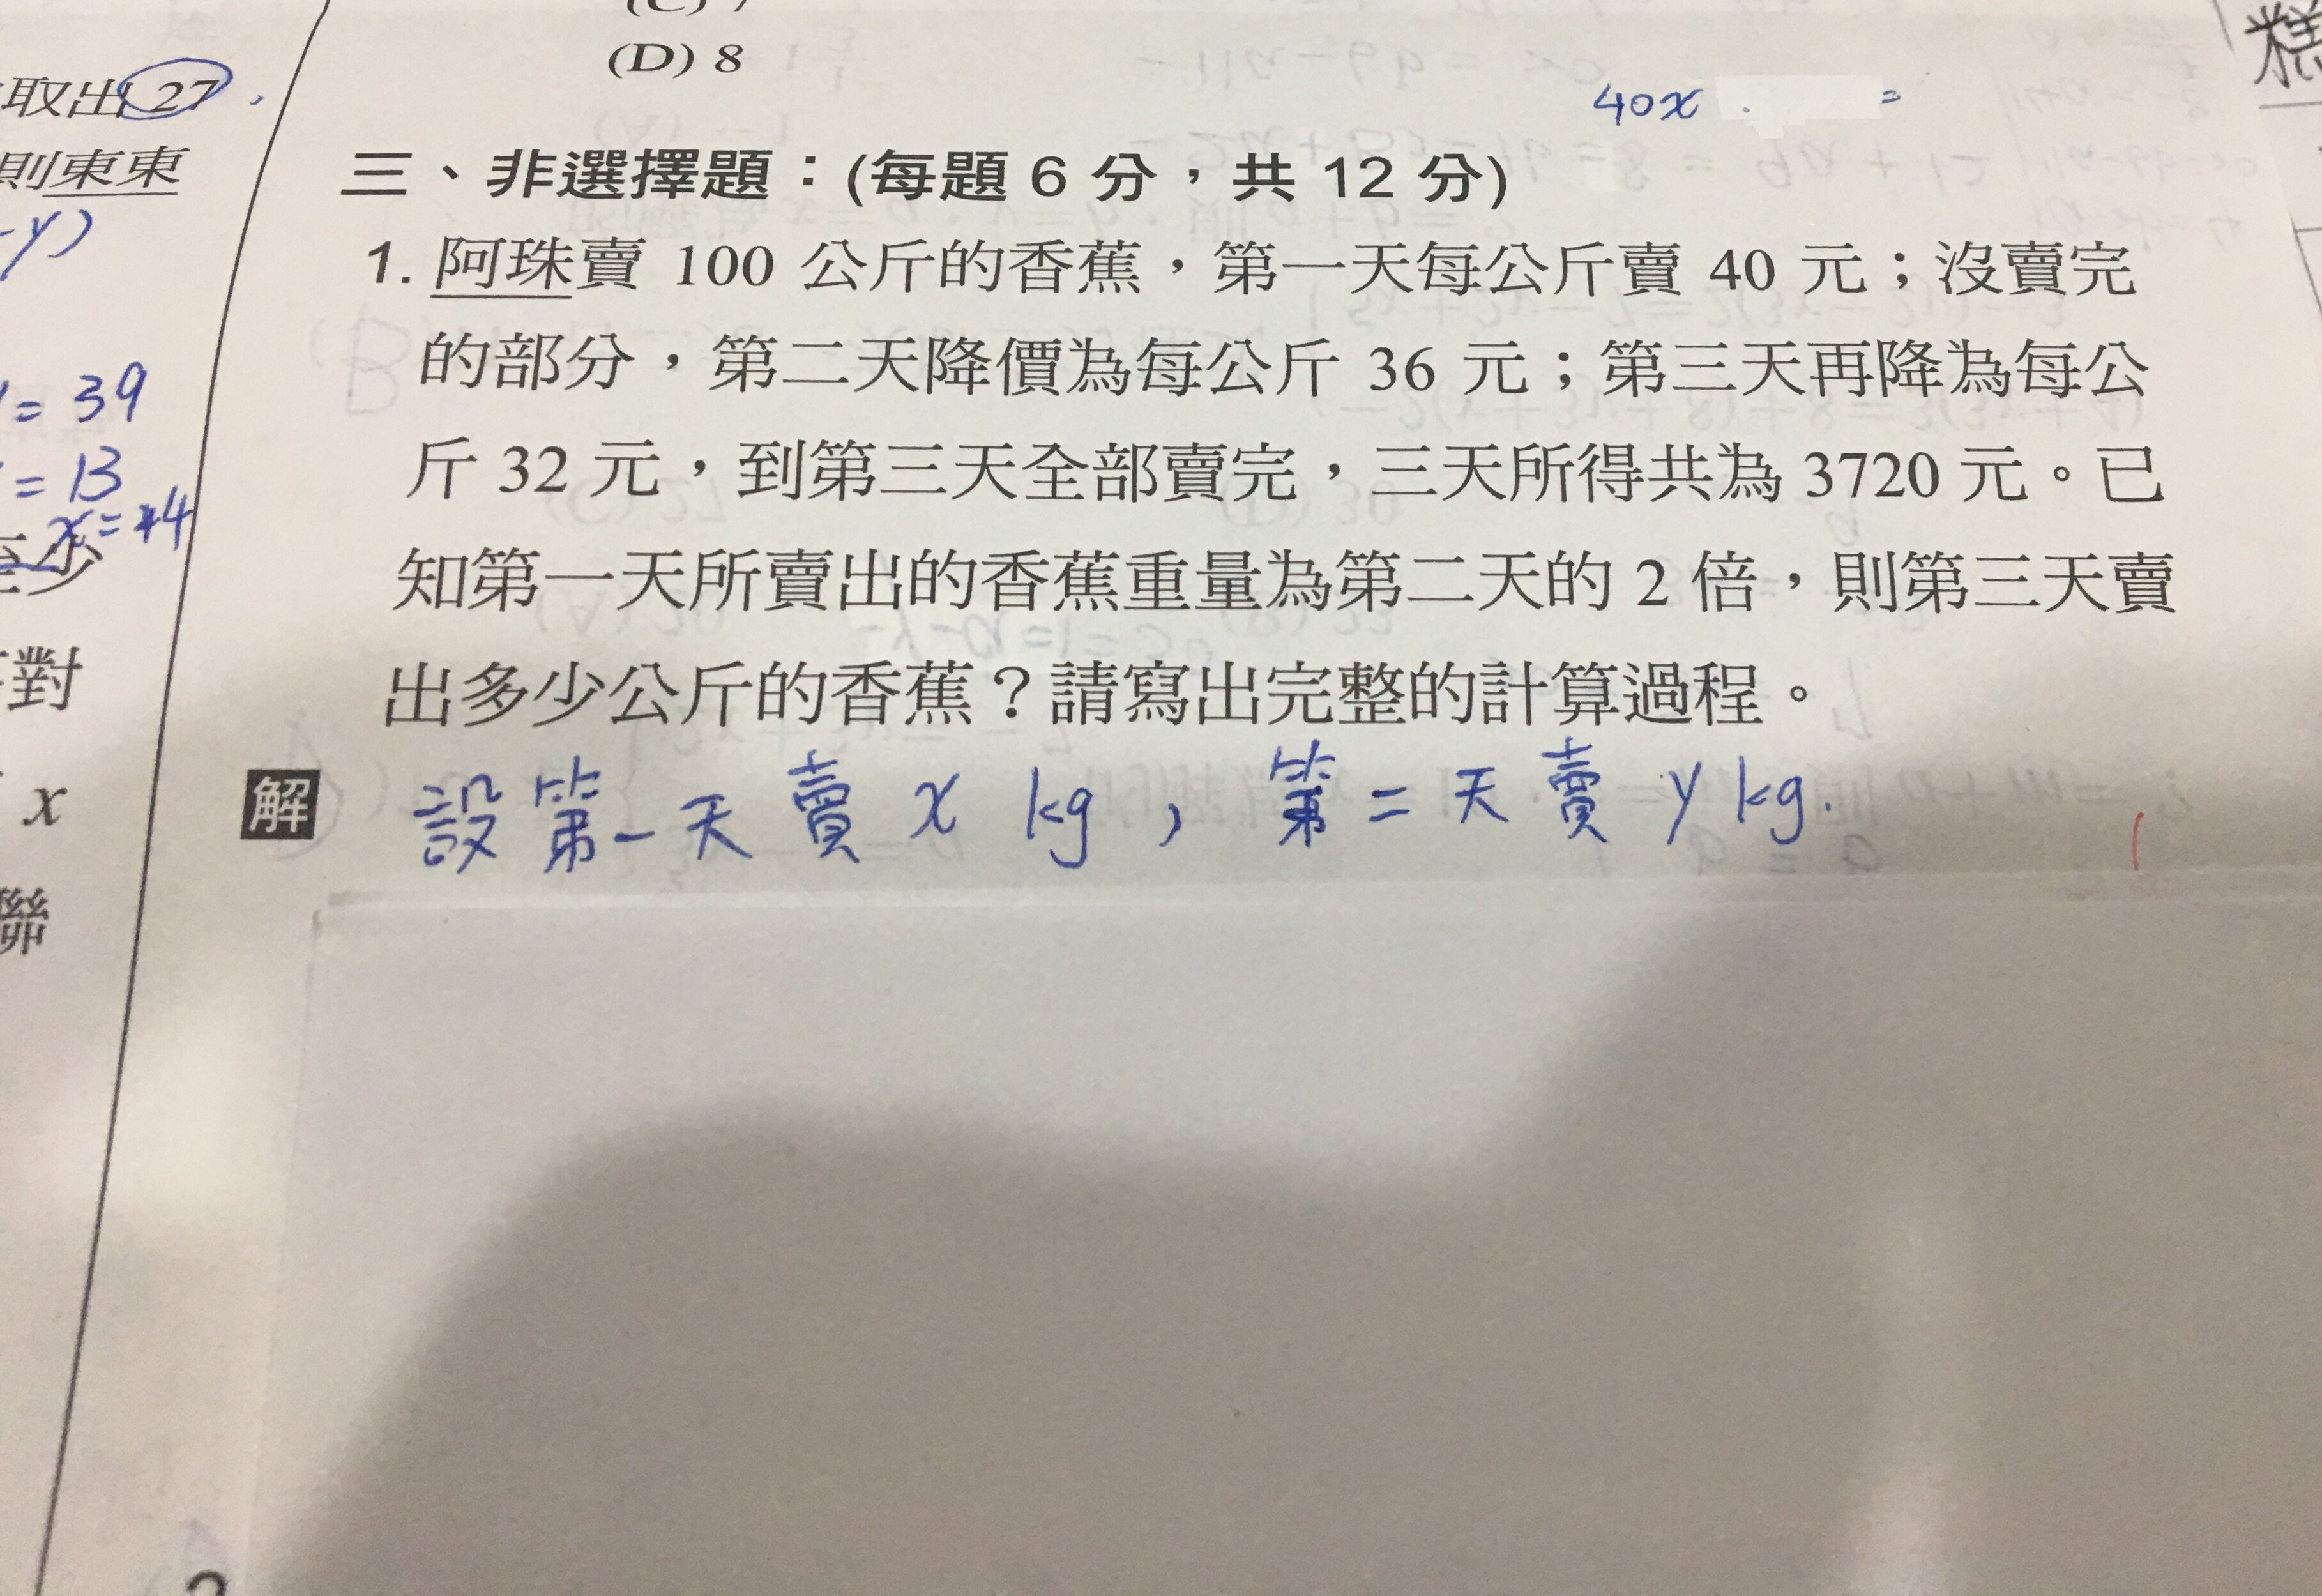 (D) 8
取出 27
則東東
-y)
= 39
= 13
x= 4
至少
對
x
聯
40x =
糕
三、非選擇題：(每題 6 分，共 12 分)
1. 阿珠賣 100 公斤的香蕉，第一天每公斤賣 40 元；沒賣完
的部分，第二天降價為每公斤 36 元；第三天再降為每公
斤 32 元，到第三天全部賣完，三天所得共為 3720 元。已
知第一天所賣出的香蕉重量為第二天的 2 倍，則第三天賣
出多少公斤的香蕉？請寫出完整的計算過程。
解 設第一天賣 x kg，第二天賣 y kg.